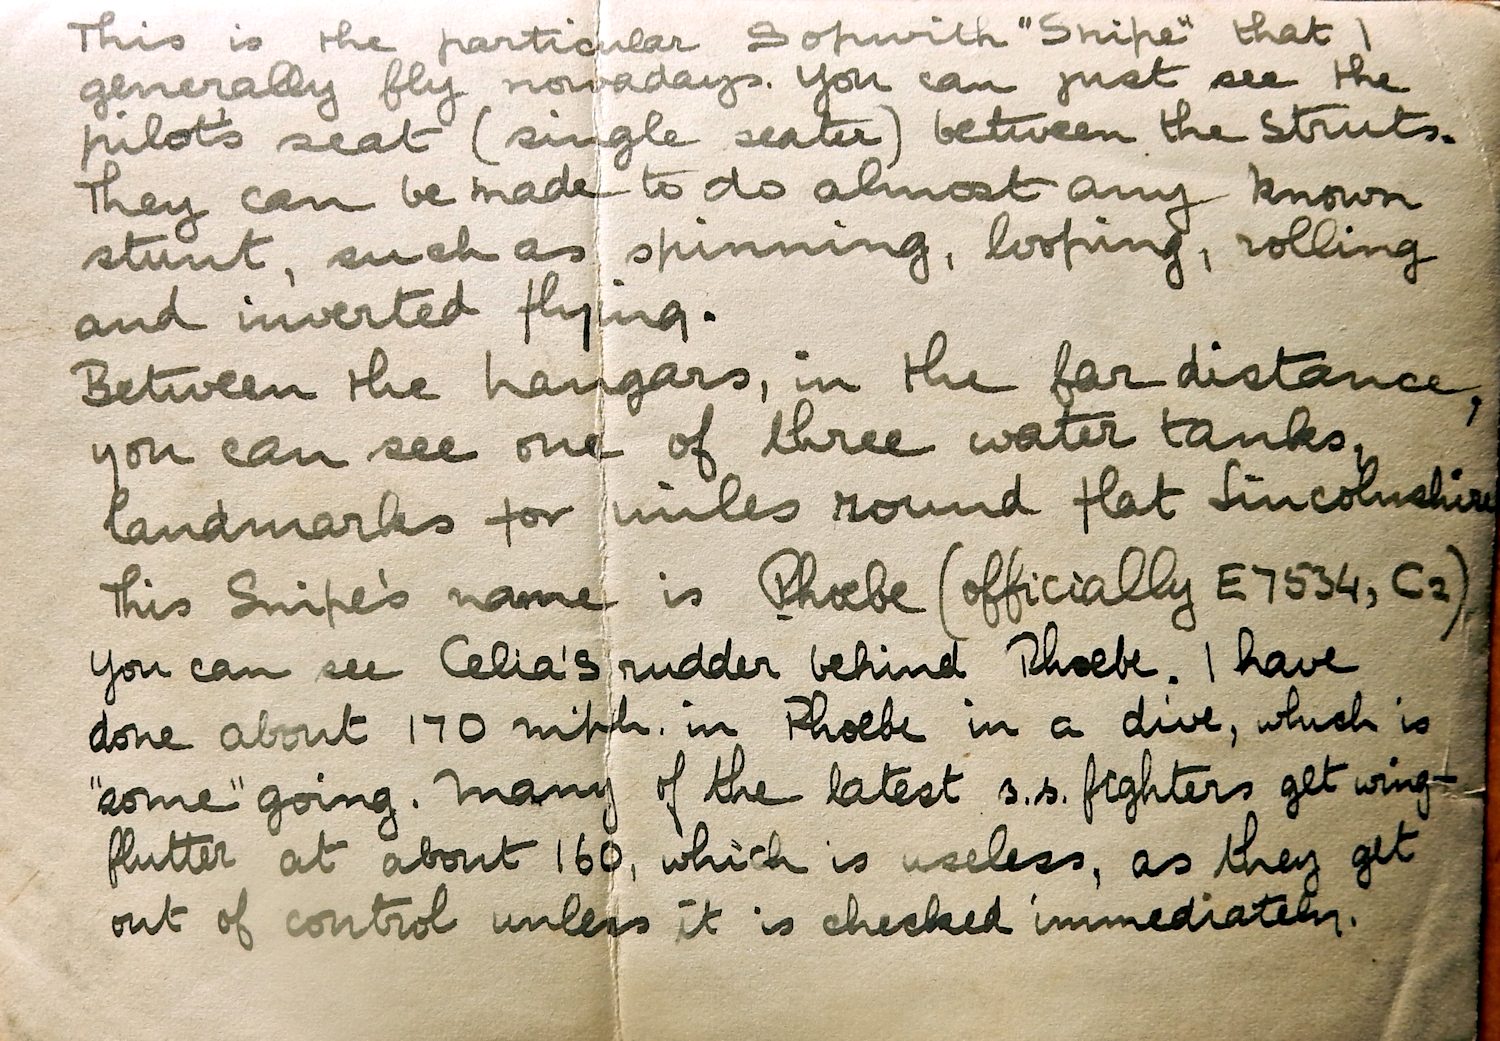 This is the particular Sopwith "Snipe" that I
generally fly nowadays. You can just see the
pilot's seat (single seater) between the struts.
They can be made to do almost any known
stunt, such as spinning, looping, rolling
and inverted flying.
Between the hangars, in the far distance,
you can see one of three water tanks,
landmarks for miles round flat Lincolnshire
This Snipe's name is Phoebe (officially E7534, C2)
You can see Celia's rudder behind Phoebe. I have
done about 170 m.p.h. in Phoebe in a dive, which is
"some" going. Many of the latest s.s. fighters get wing-
flutter at about 160, which is useless, as they get
out of control unless it is checked immediately.